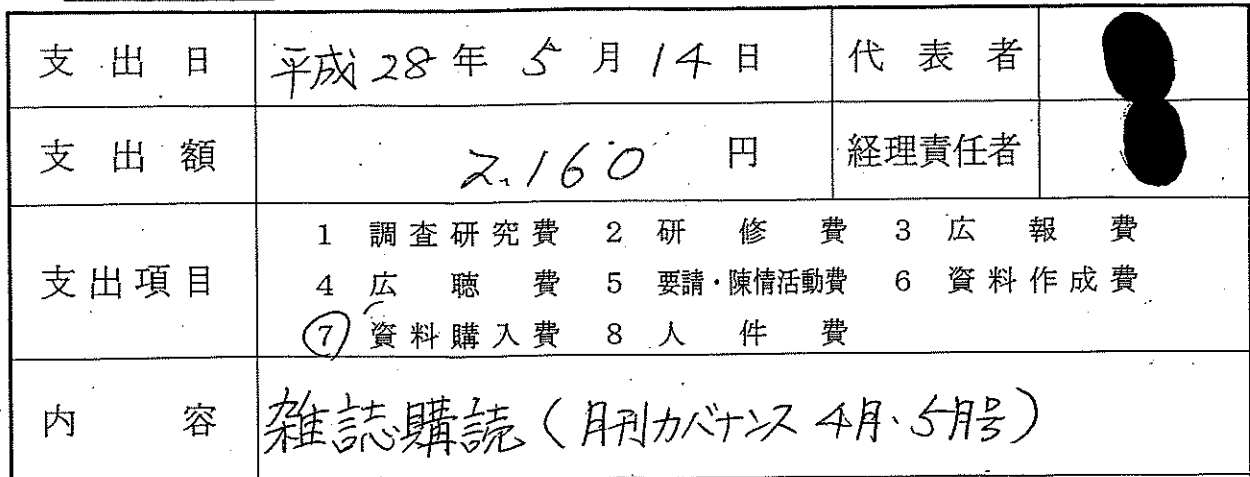 支出日 平成28年5月14日 代表者
支出額 2,160円 経理責任者
支出項目 1 調査研究費 2 研修費 3 広報費
4 広聴費 5 要請・陳情活動費 6 資料作成費
⑦ 資料購入費 8 人件費
内容 雑誌購読(月刊ガバナンス 4月、5月号)